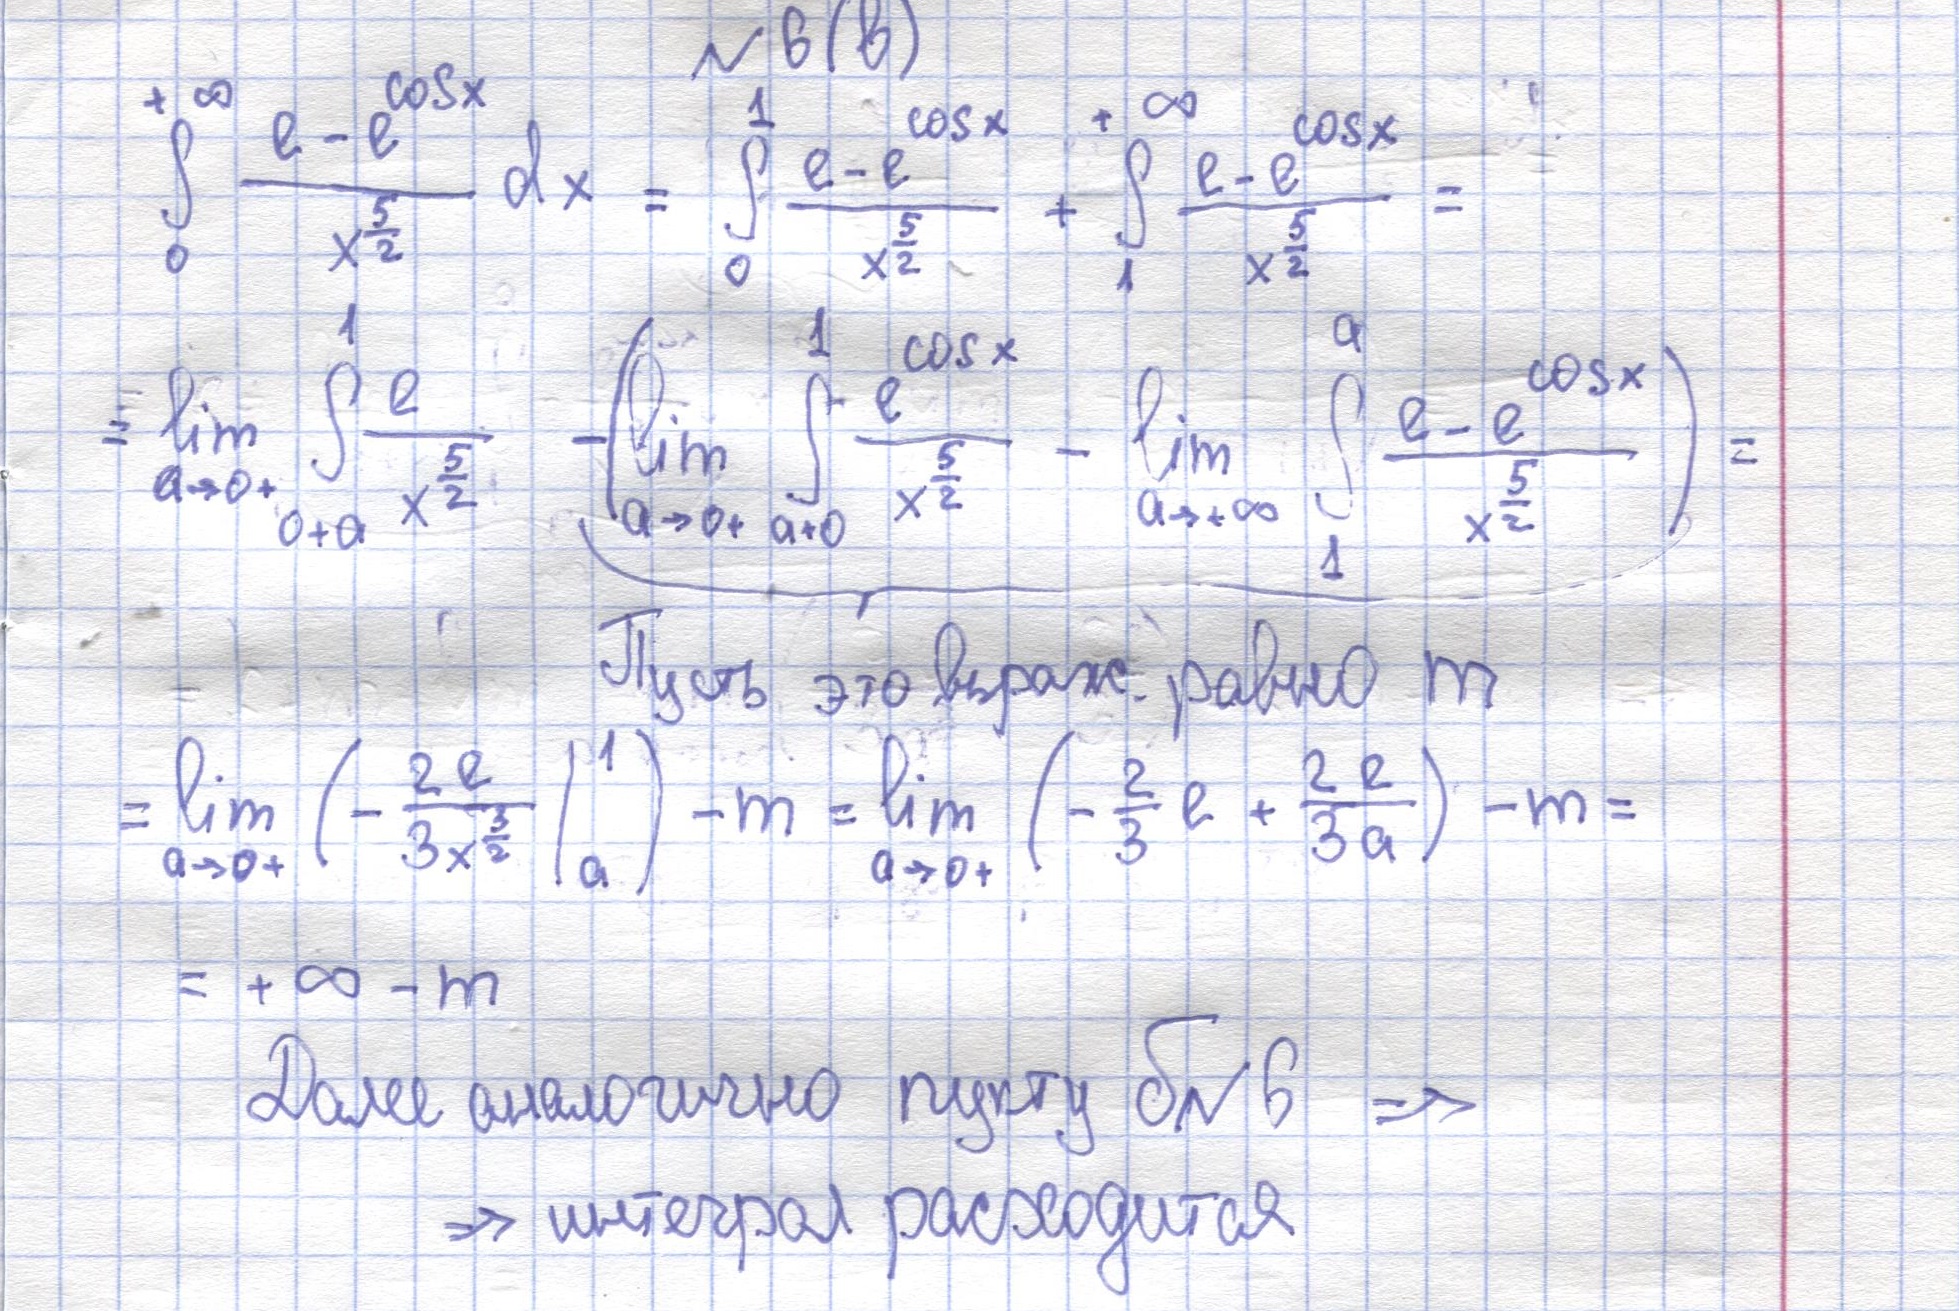 №6(в)
∫_0^{+∞} (e-e^{cosx})/(x^{5/2}) dx = ∫_0^1 (e-e^{cosx})/(x^{5/2}) + ∫_1^{+∞} (e-e^{cosx})/(x^{5/2}) =
= lim_{a→0+} ∫_{0+a}^1 e/(x^{5/2}) - (lim_{a→0+} ∫_{a+0}^1 e^{cosx}/(x^{5/2}) - lim_{a→+∞} ∫_1^a (e-e^{cosx})/(x^{5/2})) =
Пусть это выраж. равно m
= lim_{a→0+} (-2e/(3x^{3/2}) |_a^1) - m = lim_{a→0+} (-2/3 e + 2e/(3a)) - m =
= +∞ - m
Далее аналогично пункту б№6 ⇒
⇒ интеграл расходится